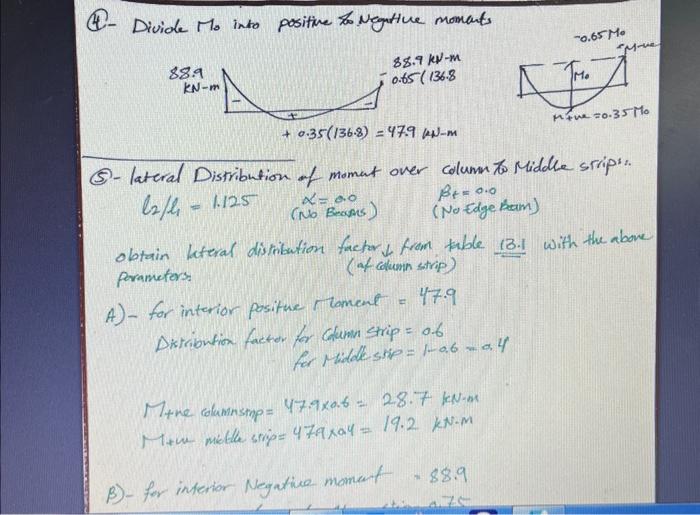 ④- Divide Mo into positive & Negative moments
-0.65 Mo
M-ve
88.9 kN-m
88.9
0.65 (136.8
kN-m
Mo
M+ve = 0.35 Mo
+ 0.35(136.8) = 47.9 kN-m
⑤- lateral Distribution of moment over column & Middle strips:
l2/l1 = 1.125
α = 0.0
βt = 0.0
(No Beams)
(No Edge Beam)
obtain lateral distribution factor from table 13.1 with the above
(of column strip)
Parameters.
A)- for interior positive Moment = 47.9
Distribution factor for Column strip = 0.6
for Middle strip = 1-0.6 = 0.4
M+ve column strip = 47.9x0.6 = 28.7 kN-m
M+ve middle strip = 47.9x0.4 = 19.2 kN-m
B)- for interior Negative moment = 88.9
0.75